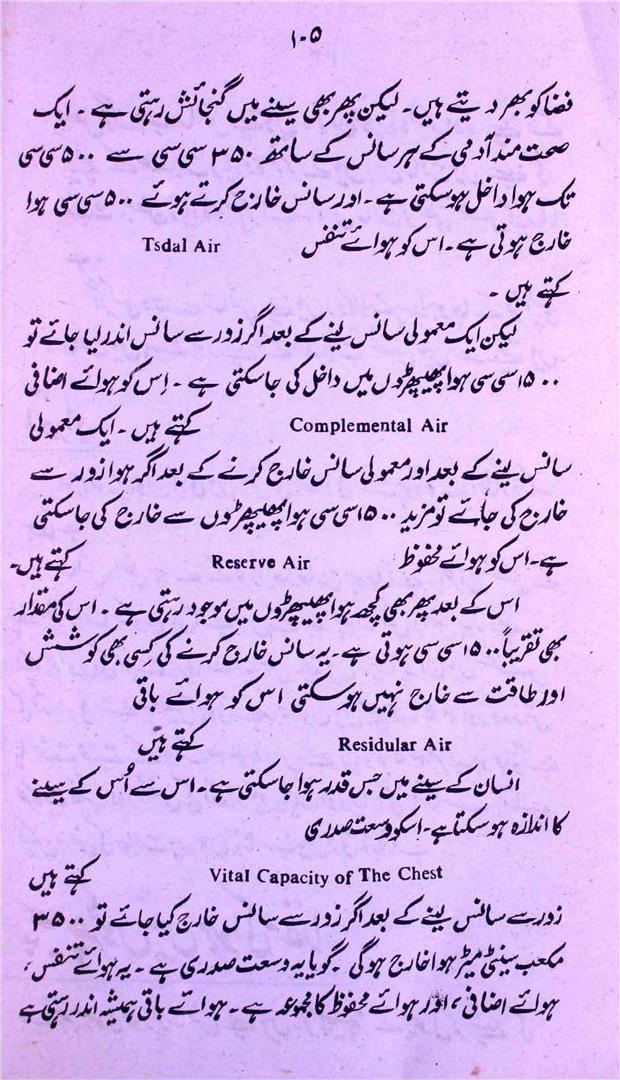 ۱۰۵
فضا کو بھر دیتے ہیں۔ لیکن پھر بھی سینے میں گنجائش رہتی ہے۔ ایک
صحت مند آدمی کے ہر سانس کے ساتھ ۳۵۰ سی سی سے ۵۰۰ سی سی
تک ہوا داخل ہو سکتی ہے۔ اور سانس خارج کرتے ہوئے ۵۰۰ سی سی ہوا
خارج ہوتی ہے۔ اس کو ہوائے تنفس Tsdal Air
کہتے ہیں۔
لیکن ایک معمولی سانس لینے کے بعد اگر زور سے سانس اندر لیا جائے تو
۱۵۰۰ سی سی ہوا پھیپھڑوں میں داخل کی جا سکتی ہے۔ اِس کو ہوائے اضافی
Complemental Air کہتے ہیں۔ ایک معمولی
سانس لینے کے بعد اور معمولی سانس خارج کرنے کے بعد اگر ہوا زور سے
خارج کی جائے تو مزید ۱۵۰۰ سی سی ہوا پھیپھڑوں سے خارج کی جا سکتی
ہے۔ اس کو ہوائے محفوظ Reserve Air کہتے ہیں۔
اس کے بعد پھر بھی کچھ ہوا پھیپھڑوں میں موجود رہتی ہے۔ اس کی مقدار
بھی تقریباً ۱۵۰۰ سی سی ہوتی ہے۔ یہ سانس خارج کرنے کی کسِی بھی کوشش
اور طاقت سے خارج نہیں ہو سکتی اس کو ہوائے باقی
Residular Air کہتے ہیں
انسان کے سینے میں جس قدر ہوا جا سکتی ہے۔ اس سے اُس کے سینے
کا اندازہ ہو سکتا ہے۔ اسکو وسعت صدری
Vital Capacity of The Chest کہتے ہیں
زور سے سانس لینے کے بعد اگر زور سے سانس خارج کیا جائے تو ۳۵۰۰
مکعب سینٹی میٹر ہوا خارج ہوگی۔ گویا یہ وسعت صدری ہے۔ یہ ہوائے تنفس،
ہوائے اضافی، اور ہوائے محفوظ کا مجموعہ ہے۔ ہوائے باقی ہمیشہ اندر رہتی ہے